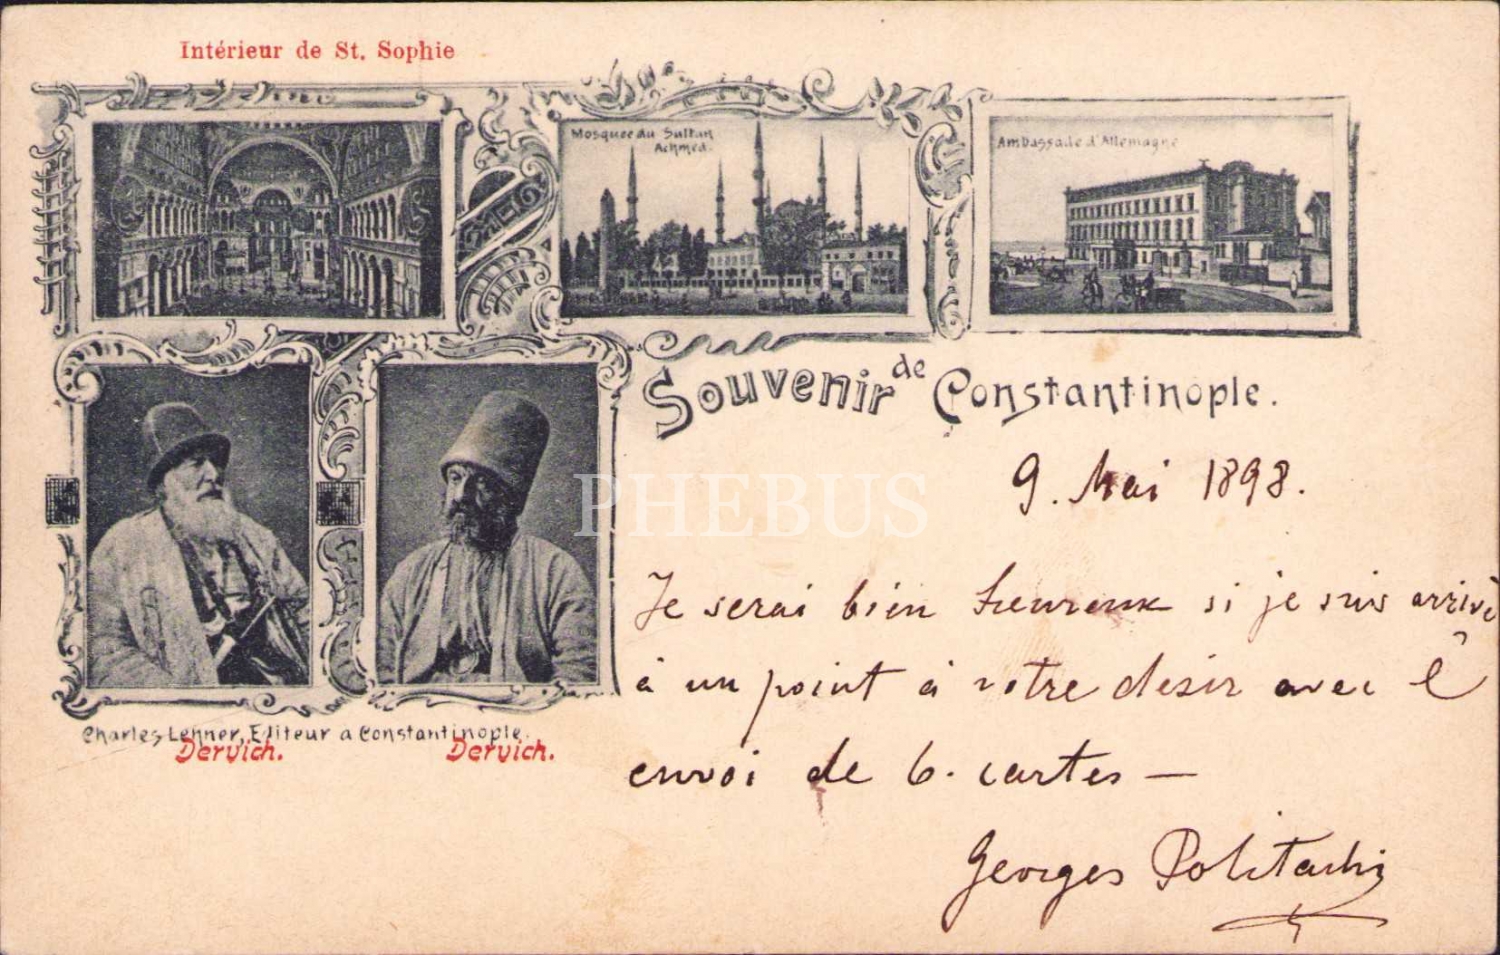 Intérieur de St. Sophie
Mosquée du Sultan
Achmed.
Ambassade d'Allemagne
Souvenir de Constantinople.
9. Mai 1898.
Je serai bien heureux si je suis arrivé
à un point à votre desir avec l'
envoi de 6. cartes —
Georges
Charles Lenner, Editeur a Constantinople.
Dervich. Dervich.
PHEBUS